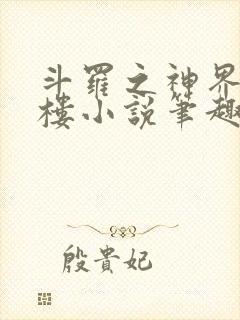 斗羅之神界
樓小說筆趣
殷貴妃